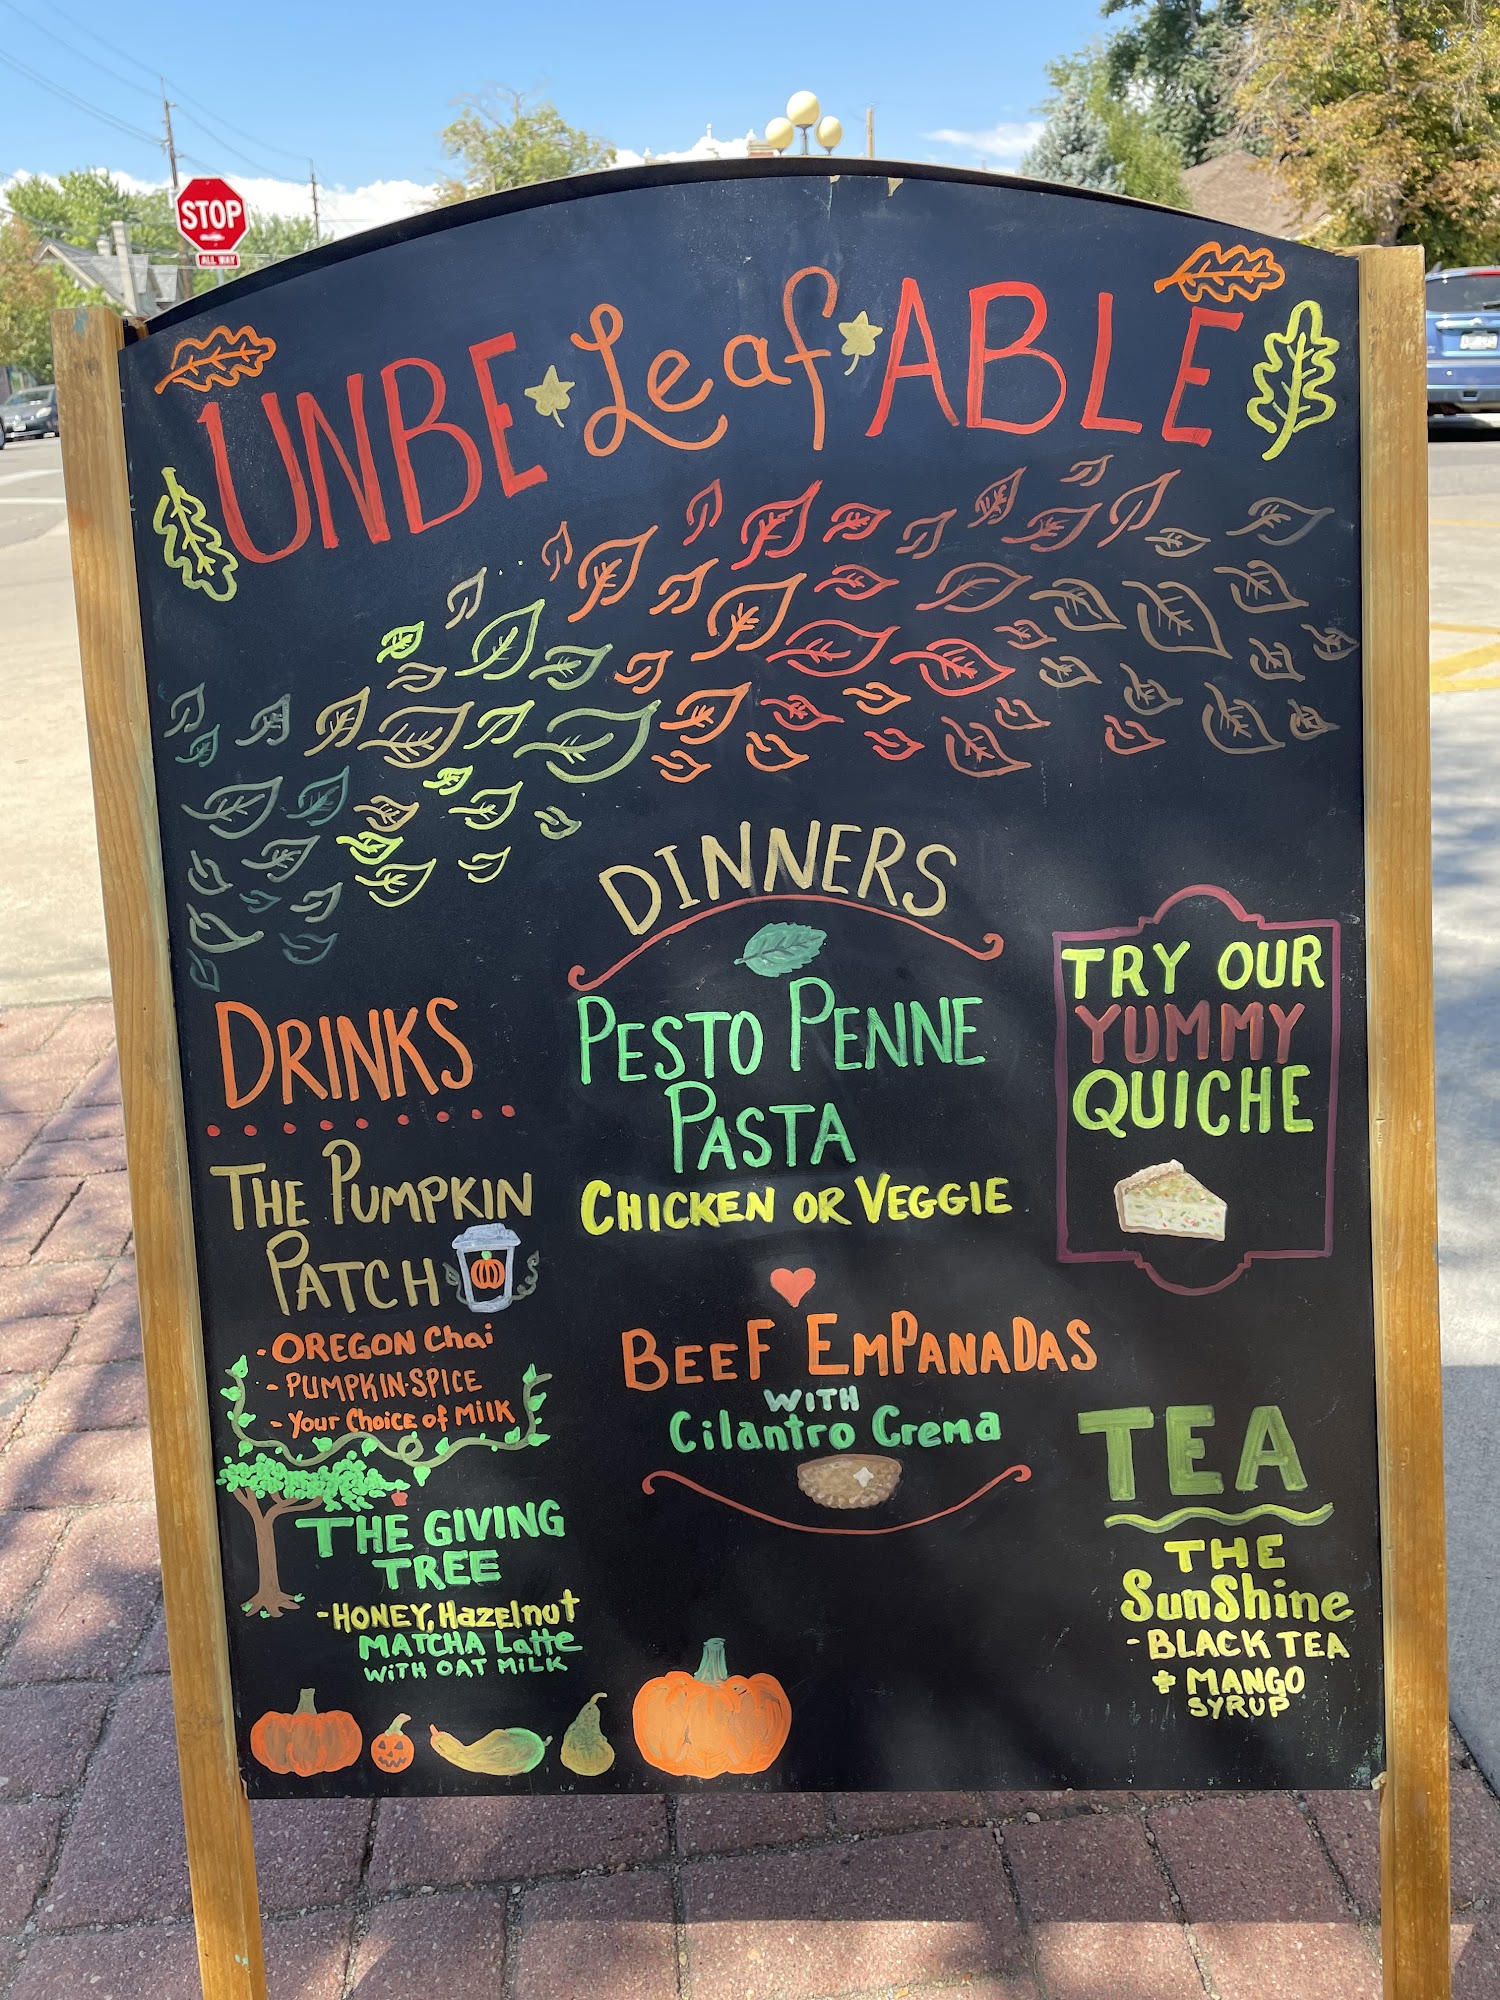 STOP
ALL WAY
UNBE LeafABLE
DINNERS
PESTO PENNE
PASTA
CHICKEN OR VEGGIE
BEEF EMPANADAS
WITH
Cilantro Crema
DRINKS
THE PUMPKIN
PATCH
-OREGON Chai
- PUMPKIN·SPICE
- Your Choice of MILK
THE GIVING
TREE
-HONEY, Hazelnut
MATCHA Latte
WITH OAT MILK
TRY OUR
YUMMY
QUICHE
TEA
THE
SunShine
-BLACK TEA
+ MANGO
SYRUP